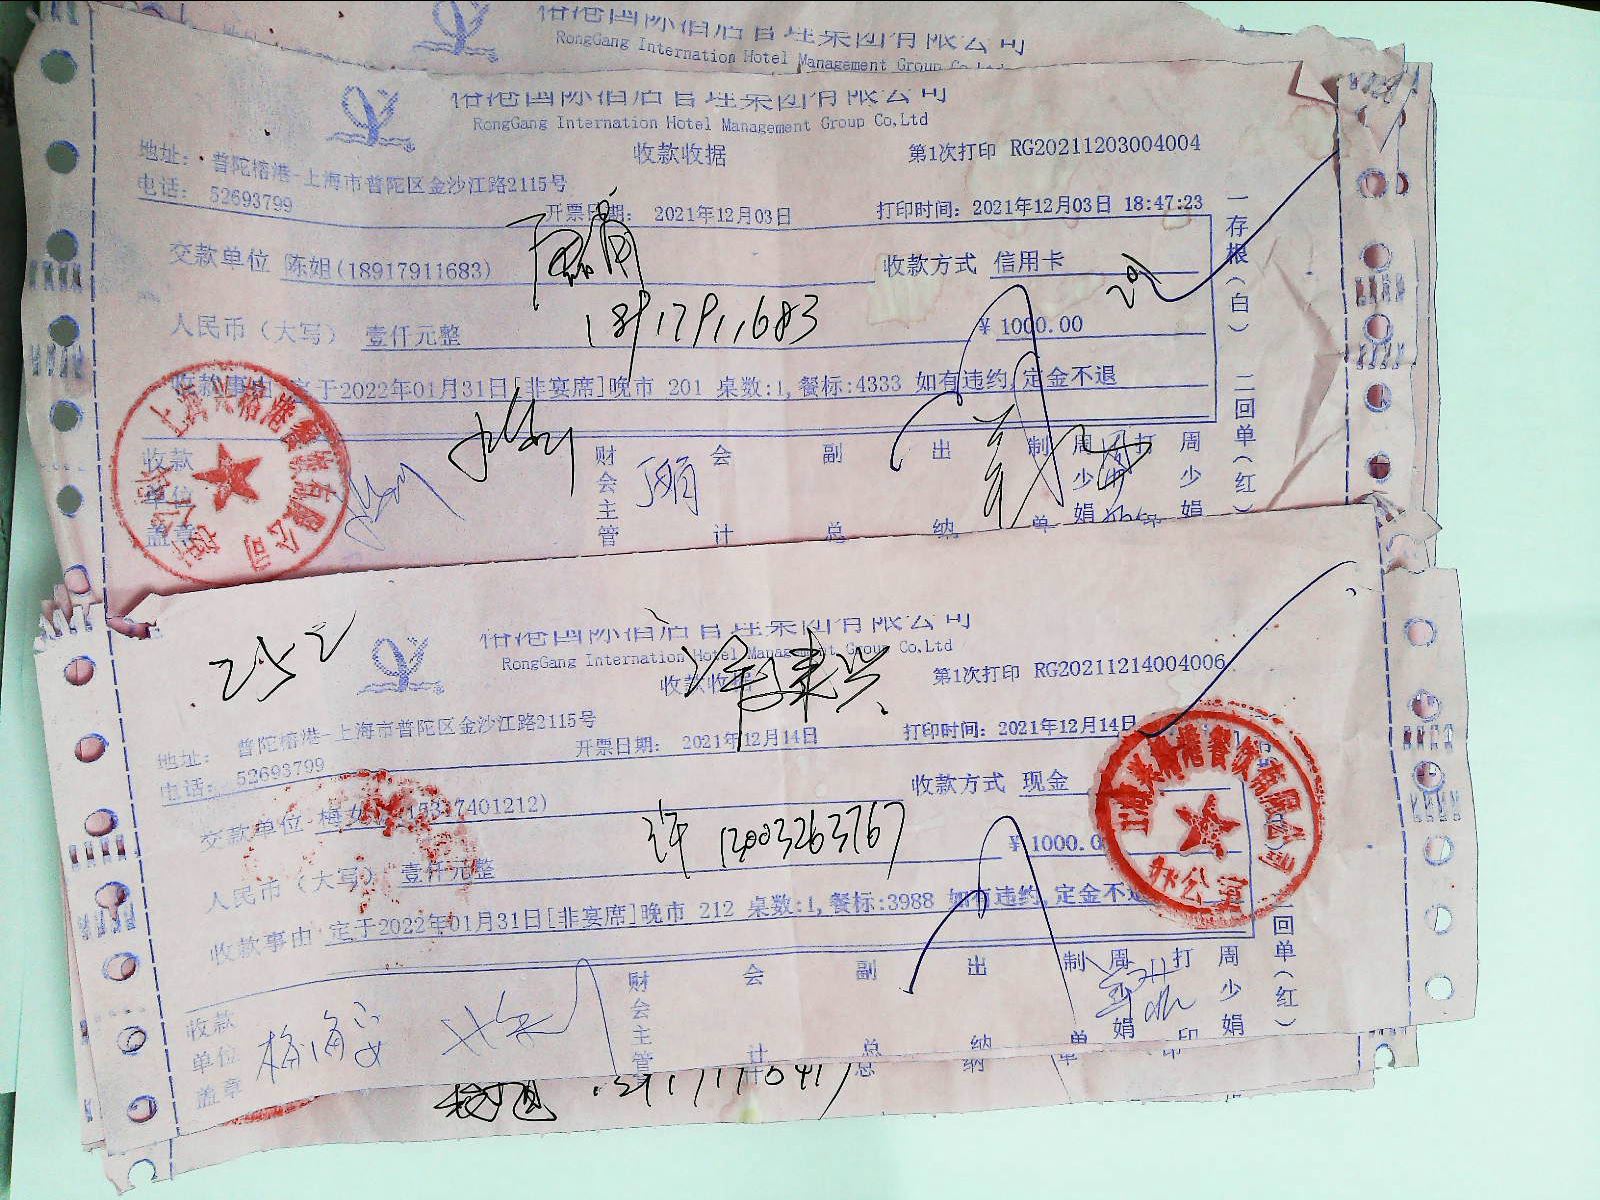 RongGang Internation Hotel Management Group Co,Ltd
国际酒店管理集团有限公司
RongGang Internation Hotel Management Group Co,Ltd
收款收据
第1次打印 RG20211203004004
地址: 普陀榕港-上海市普陀区金沙江路2115号
电话: 52693799
开票日期: 2021年12月03日
打印时间: 2021年12月03日 18:47:23
交款单位 陈姐(18917911683)
收款方式 信用卡
18917911683
人民币(大写) 壹仟元整
¥ 1000.00
收款事由 定于2022年01月31日[非宴席]晚市 201 桌数:1,餐标:4333 如有违约,定金不退
收款单位盖章
财会主管 会计 副总 出纳 制单 周少娟 打印 周少娟
一存根(白) 二回单(红)
252
国际酒店管理集团有限公司
RongGang Internation Hotel Management Group Co,Ltd
收款收据
第1次打印 RG20211214004006
地址: 普陀榕港-上海市普陀区金沙江路2115号
电话: 52693799
开票日期: 2021年12月14日
打印时间: 2021年12月14日
交款单位 梅女
收款方式 现金
许 13003263767
人民币(大写) 壹仟元整
¥ 1000.0
收款事由 定于2022年01月31日[非宴席]晚市 212 桌数:1,餐标:3988 如有违约,定金不退
办公室
收款单位盖章
财会主管 会计 副总 出纳 制单 周少娟 打印 周少娟
二回单(红)